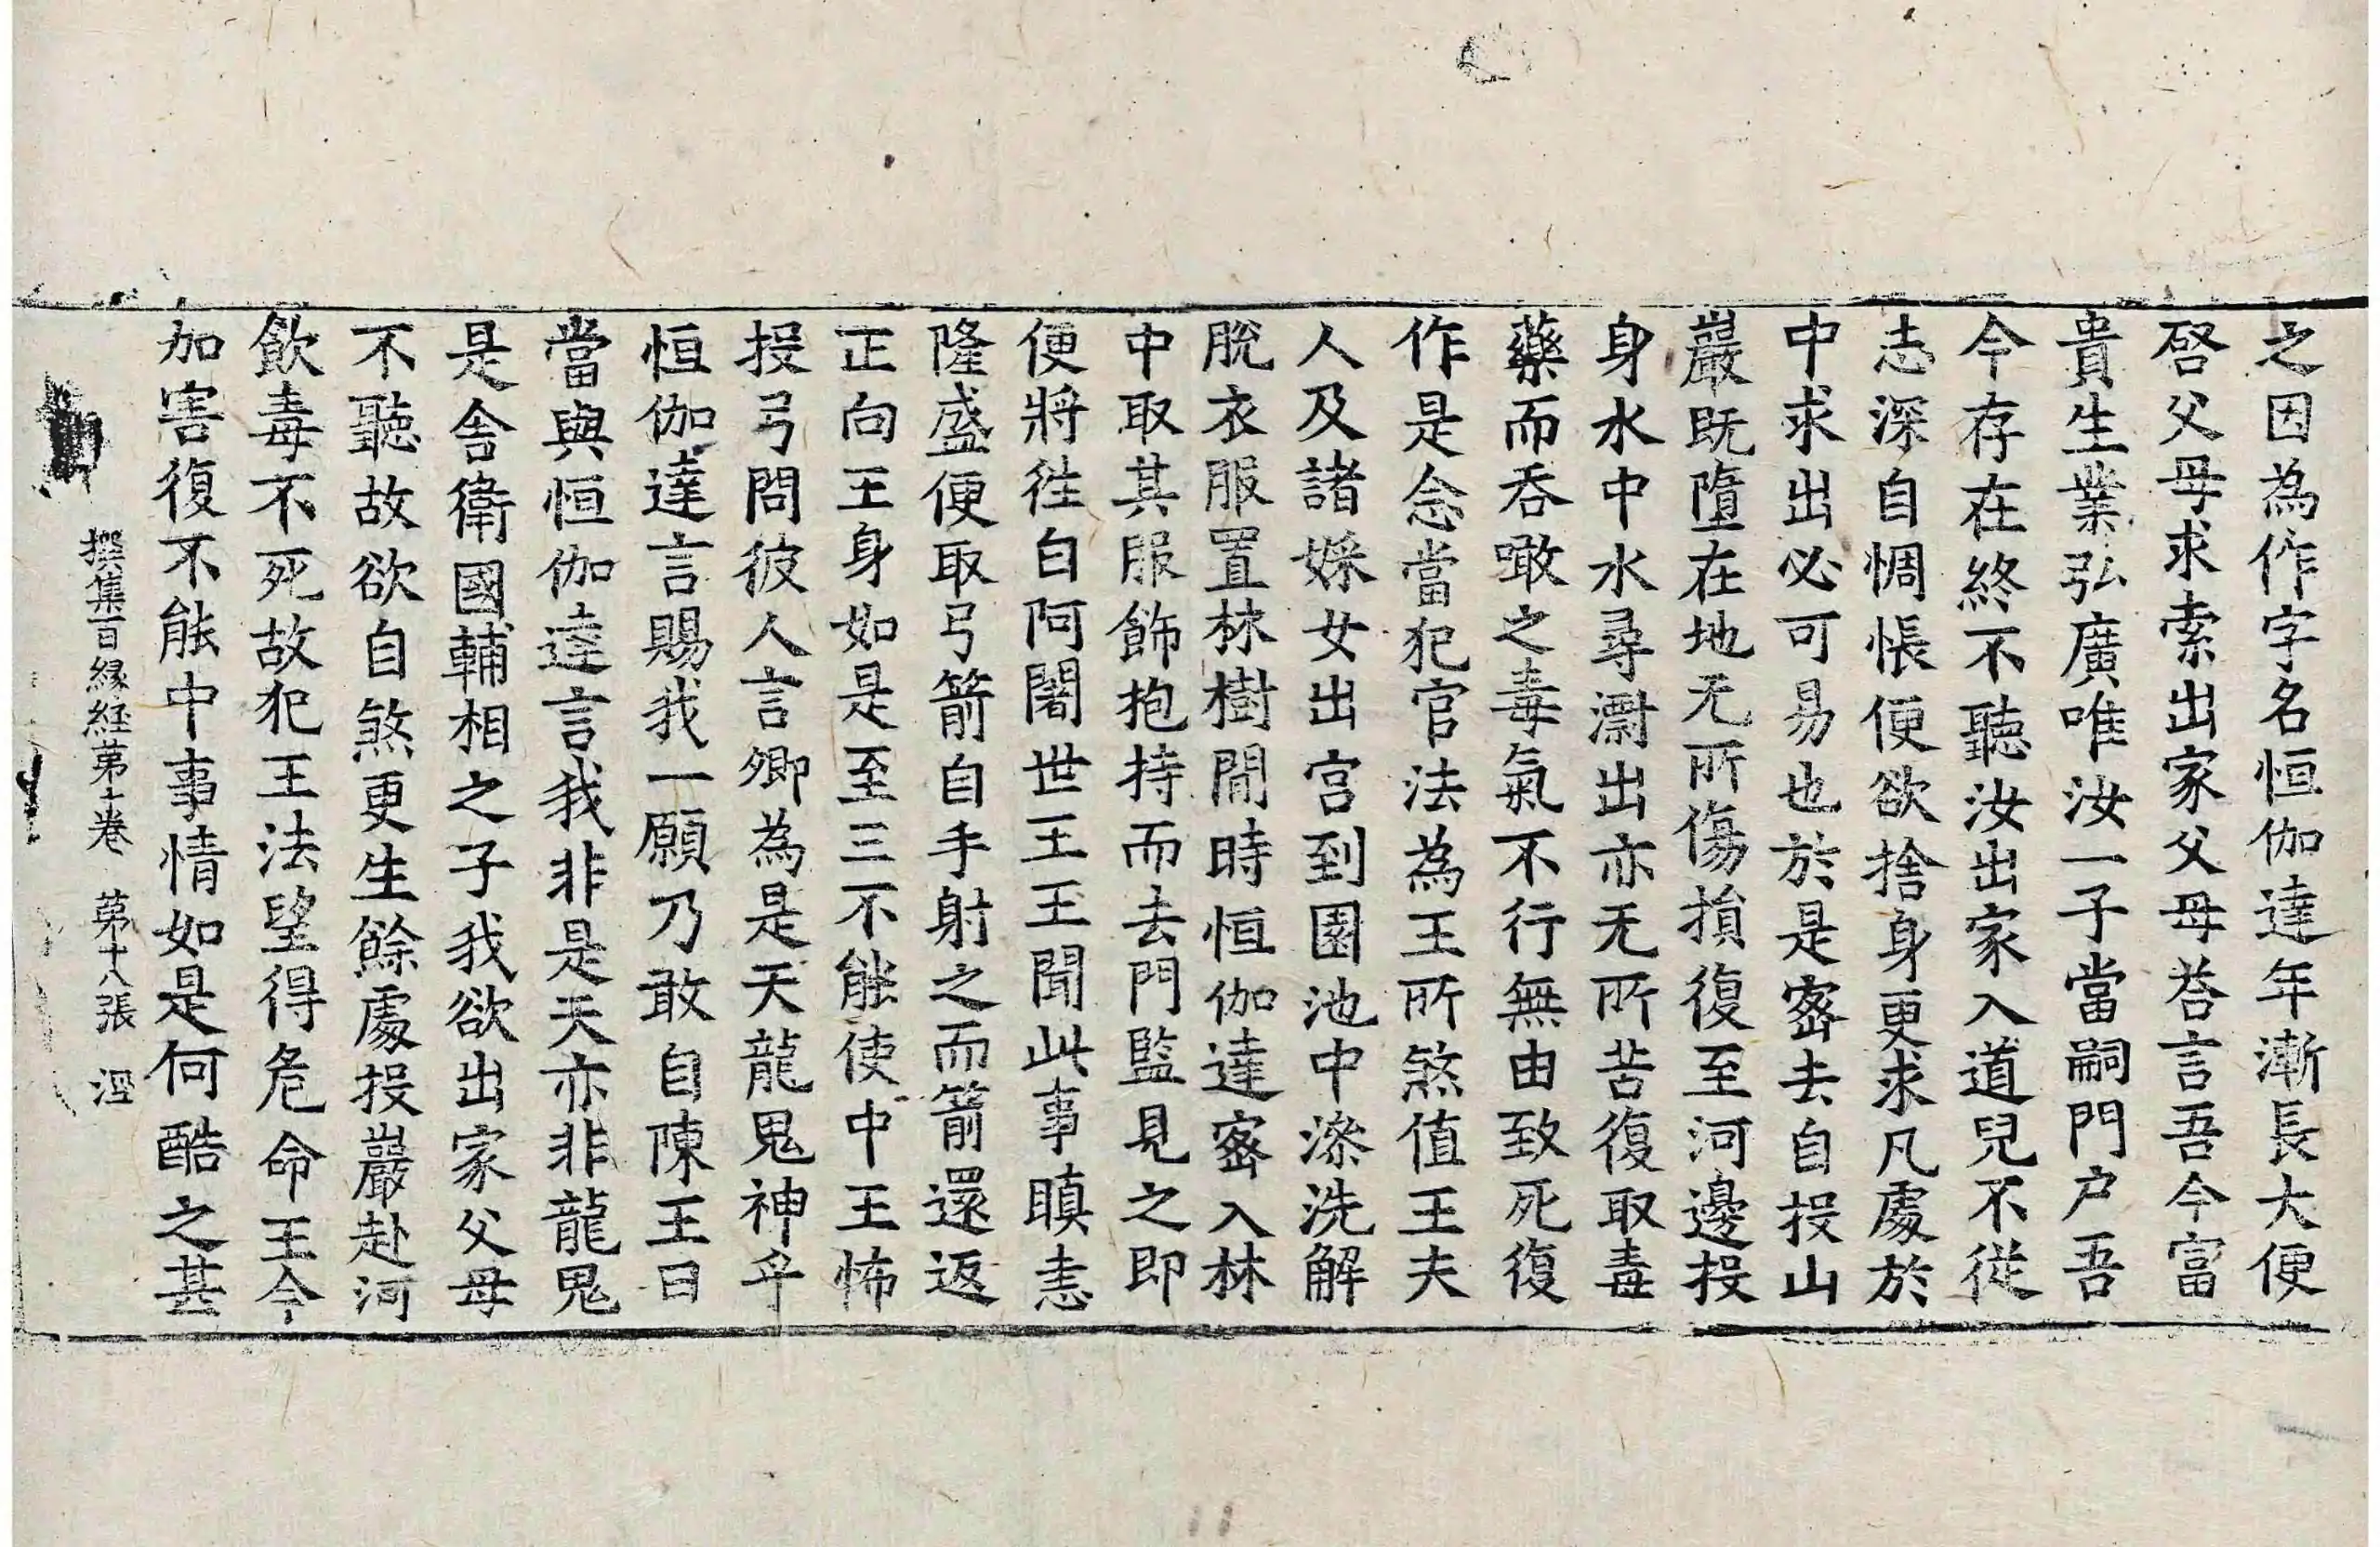 之因為作字名恒伽達年漸長大便
啓父母求索出家父母荅言吾今富
貴生業弘廣唯汝一子當嗣門户吾
今存在終不聽汝出家入道兒不從
志深自惆悵便欲捨身更求凡處於
中求出必可易也於是宻去自投山
巖既墮在地无所傷損復至河邊投
身水中水尋灂出亦无所苦復取毒
藥而吞噉之毒氣不行無由致死復
作是念當犯官法為王所煞值王夫
人及諸婇女出宫到園池中㴜洗解
脫衣服置林樹閒時恒伽達宻入林
中取其服飾抱持而去門監見之即
便將徃白阿闍世王王聞此事瞋恚
隆盛便取弓箭自手射之而箭還返
正向王身如是至三不能使中王怖
投弓問彼人言卿為是天龍鬼神乎
恒伽達言賜我一願乃敢自陳王曰
當與恒伽達言我非是天亦非龍鬼
是舍衛國輔相之子我欲出家父母
不聽故欲自煞更生餘處投巖赴河
飲毒不死故犯王法望得危命王今
加害復不能中事情如是何酷之甚
撰集百縁経苐十巻 苐十八張 㴉